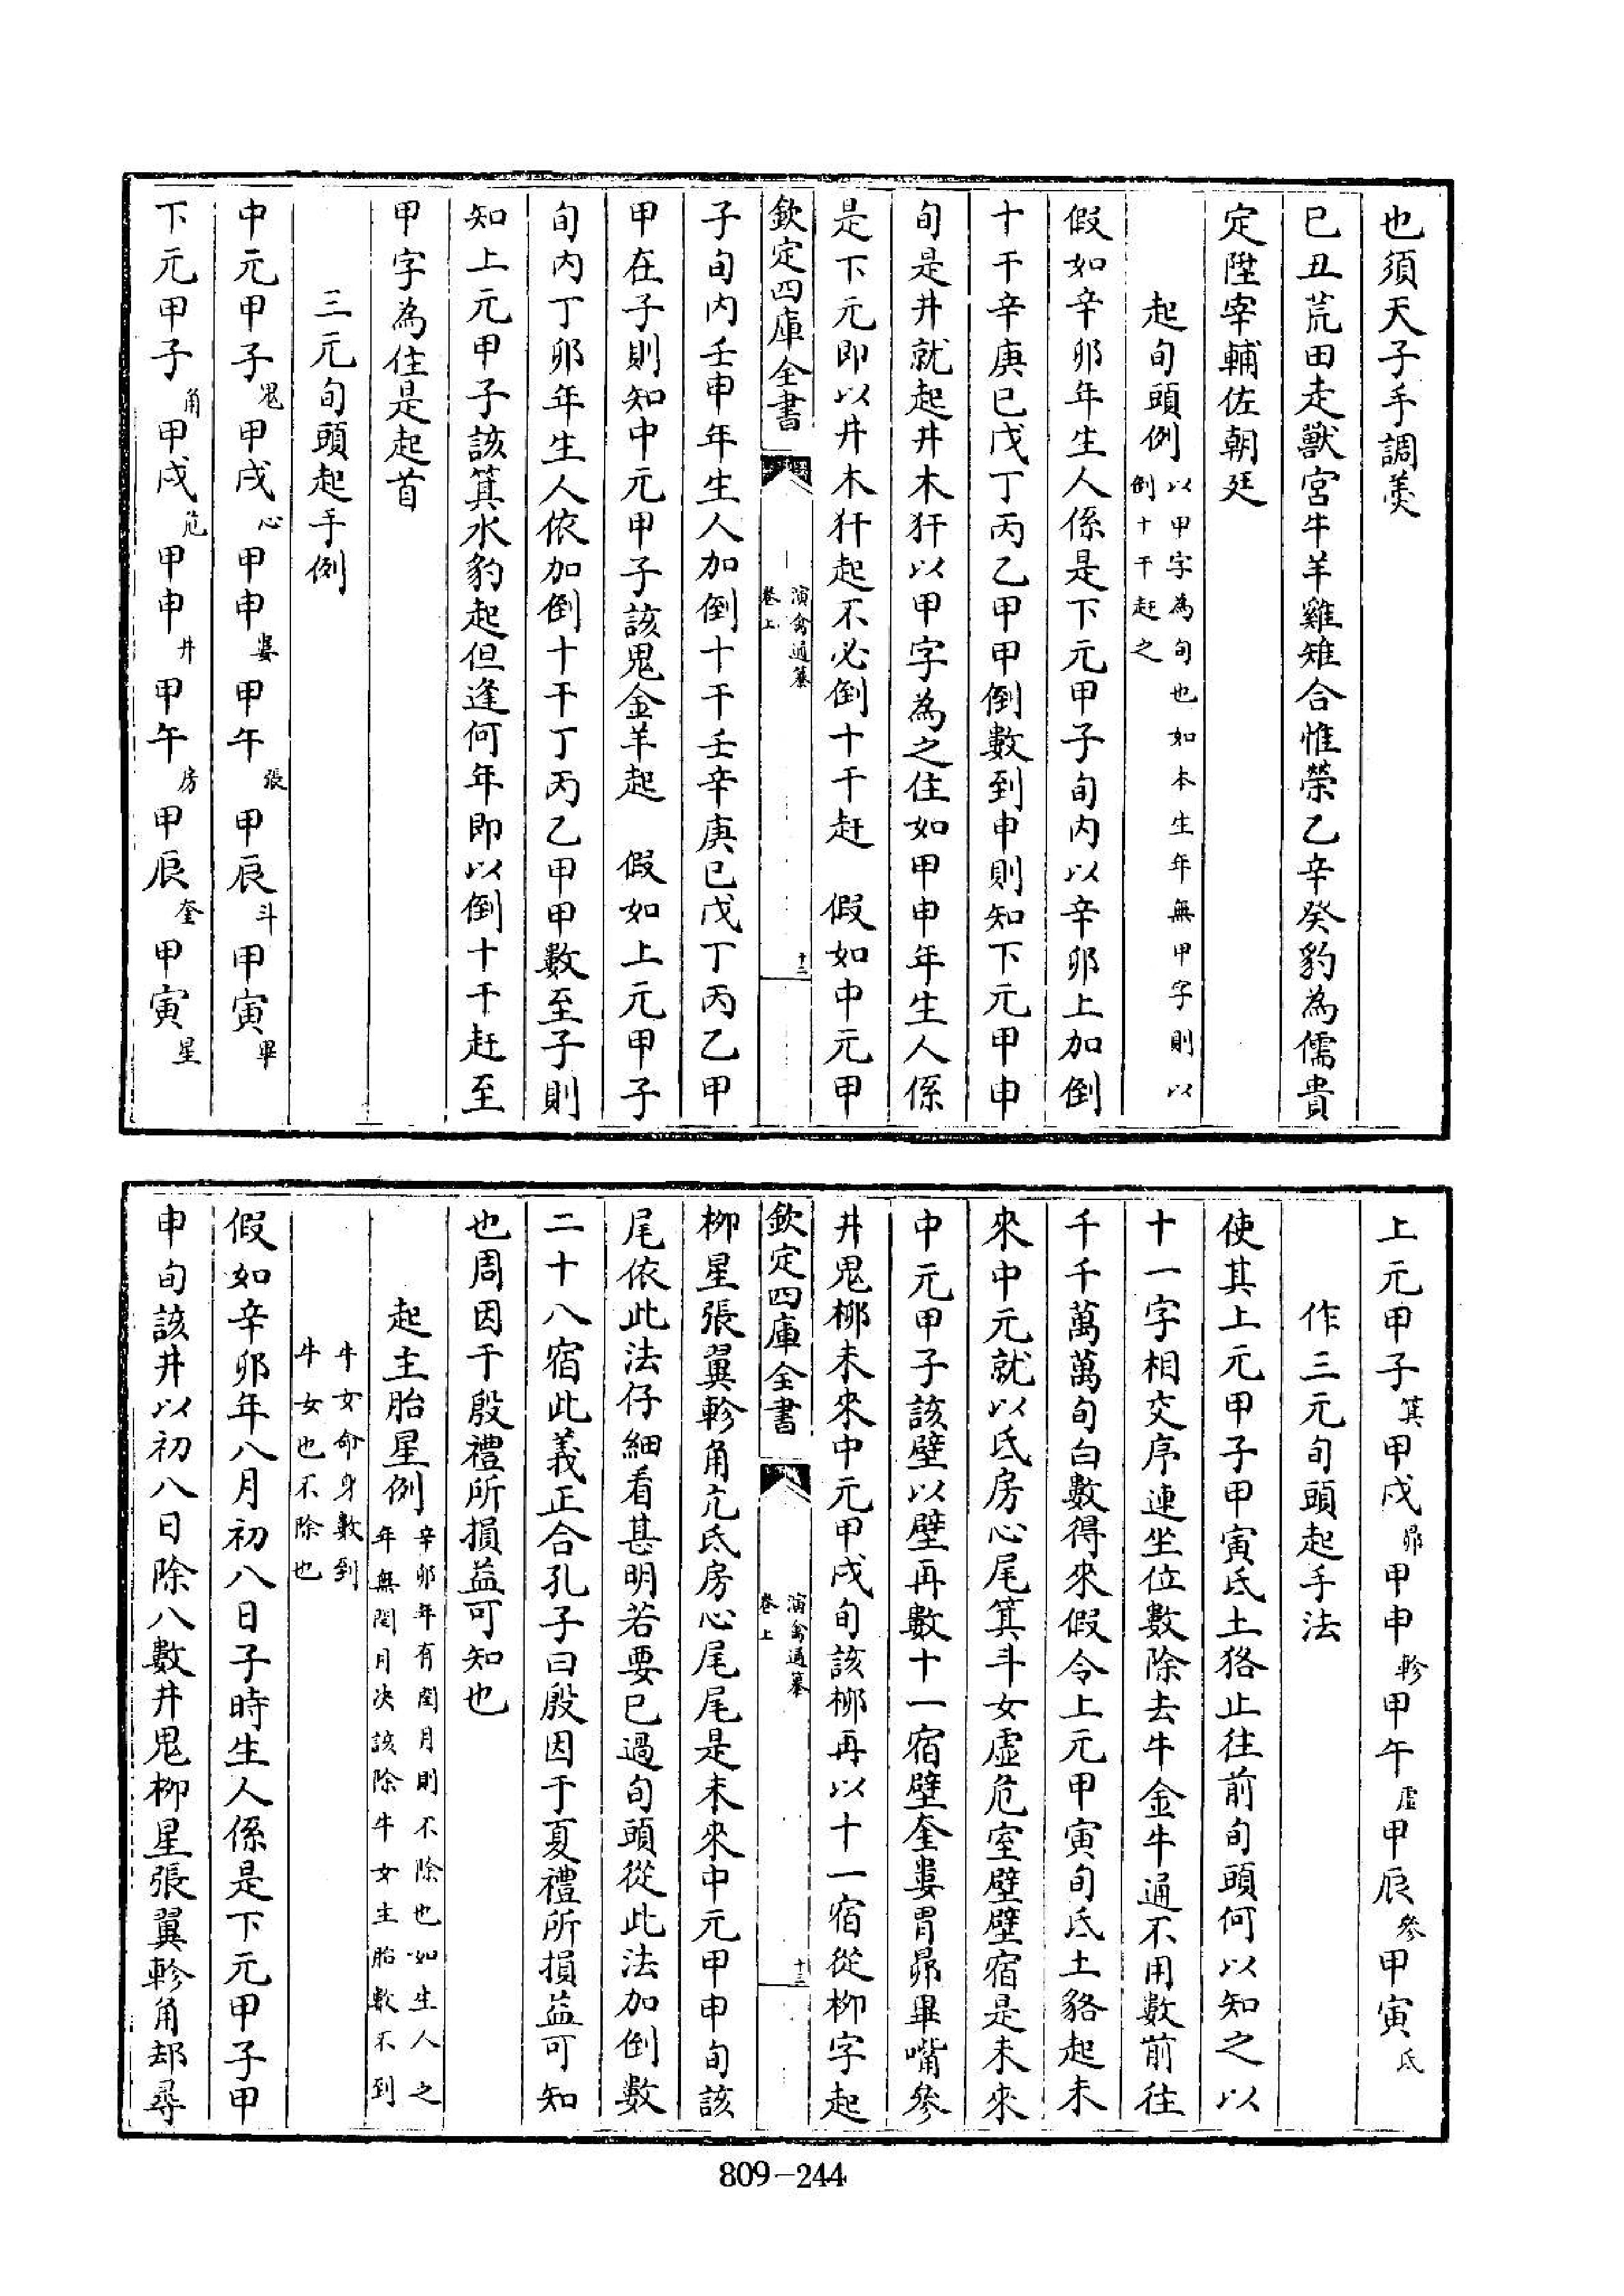 也須天子手調羮
巳丑荒田走獸宮牛羊雞雉合惟榮乙辛癸豹為儒貴
定陞宰輔佐朝廷
起旬頭例以甲字為旬也如本生年無甲字則以
倒十干赶之
假如辛卯年生人係是下元甲子旬内以辛卯上加倒
十干辛庚巳戊丁丙乙甲甲倒數到申則知下元甲申
旬是井就起井木犴以甲字為之住如甲申年生人係
是下元即以井木犴起不必倒十干赶 假如中元甲
欽定四庫全書
演禽通纂
卷上
十二
子旬内壬申年生人加倒十干壬辛庚巳戊丁丙乙甲
甲在子則知中元甲子該鬼金羊起 假如上元甲子
旬内丁卯年生人依加倒十干丁丙乙甲甲數至子則
知上元甲子該箕水豹起但逢何年即以倒十干赶至
甲字為住是起首
三元旬頭起手例
中元甲子鬼甲戌心甲申婁甲午張甲辰斗甲寅畢
下元甲子角甲戌危甲申井甲午房甲辰奎甲寅星
上元甲子箕甲戌昴甲申軫甲午虛甲辰參甲寅氐
作三元旬頭起手法
使其上元甲子甲寅氐土狢止往前旬頭何以知之以
十一字相交序連坐位數除去牛金牛通不用數前往
千千萬萬旬白數得來假令上元甲寅旬氐土貉起未
來中元就以氐房心尾箕斗女虛危室壁壁宿是未來
中元甲子該壁以壁再數十一宿壁奎婁胃昴畢嘴參
井鬼栁未來中元甲戌旬該栁再以十一宿從栁字起
欽定四庫全書
演禽通纂
卷上
十三
栁星張翼軫角亢氐房心尾尾是未來中元甲申旬該
尾依此法仔細看甚明若要巳過旬頭從此法加倒數
二十八宿此義正合孔子曰殷因于夏禮所損益可知
也周因于殷禮所損益可知也
起主胎星例辛卯年有閏月則不除也如生人之
年無閏月决該除牛女主胎數不到
牛女命身數到
牛女也不除也
假如辛卯年八月初八日子時生人係是下元甲子甲
申旬該井以初八日除八數井鬼栁星張翼軫角却尋
809-244